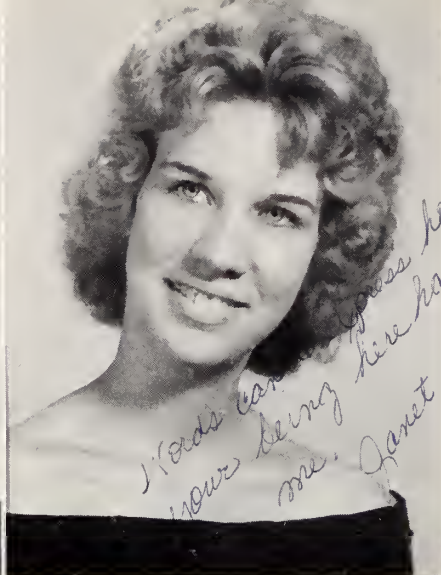 Words can express
your being here
me.
Janet